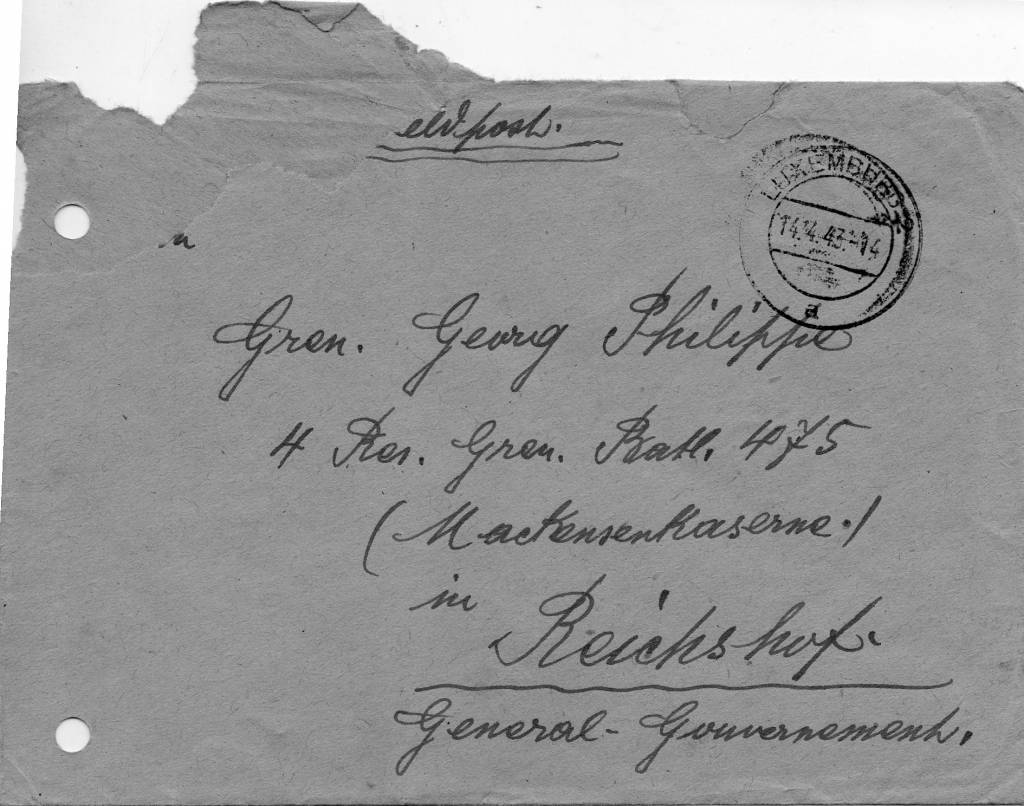 eldpost.
LUXEMBURG
14.4.43.-14
a
Gren. Georg Philippe
4 Res. Gren. Batl. 475
(Mackensenkaserne.)
in
Reichshof.
General-Gouvernement.